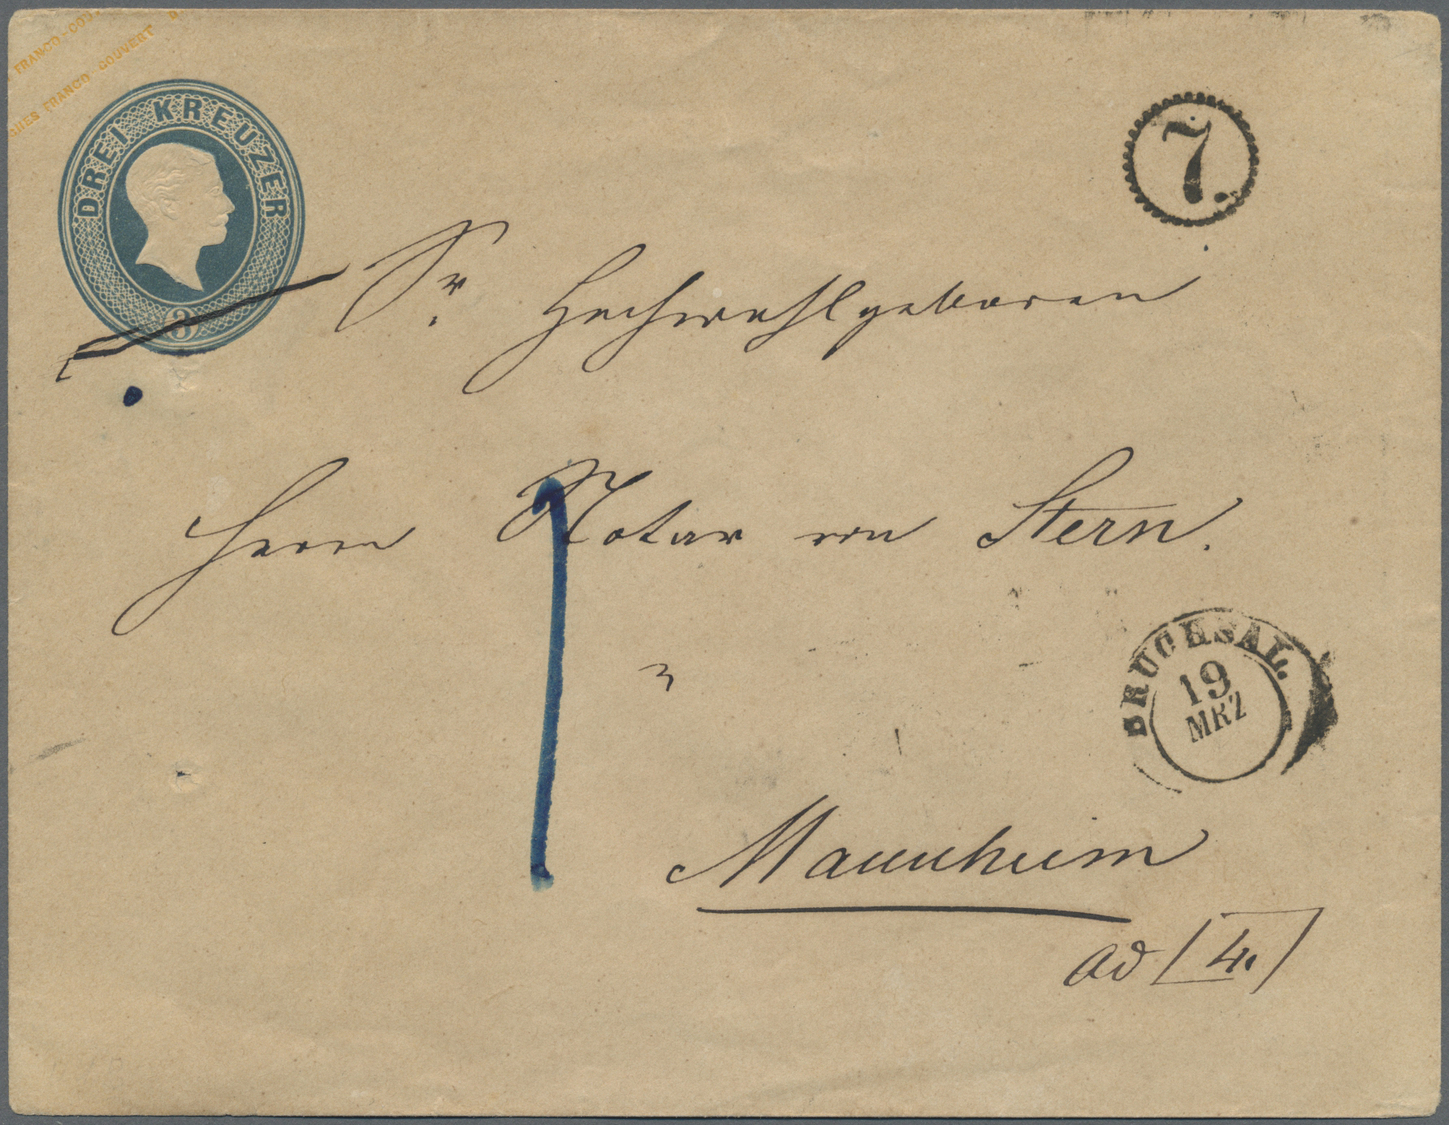 FRANCO-COU
GHES FRANCO COUVERT
DREI KREUZER
3
7.
Sr. Hochwohlgeboren
Herrn Notar von Stern.
1
BRUCHSAL.
19
MRZ
Mannheim
ad [4.]